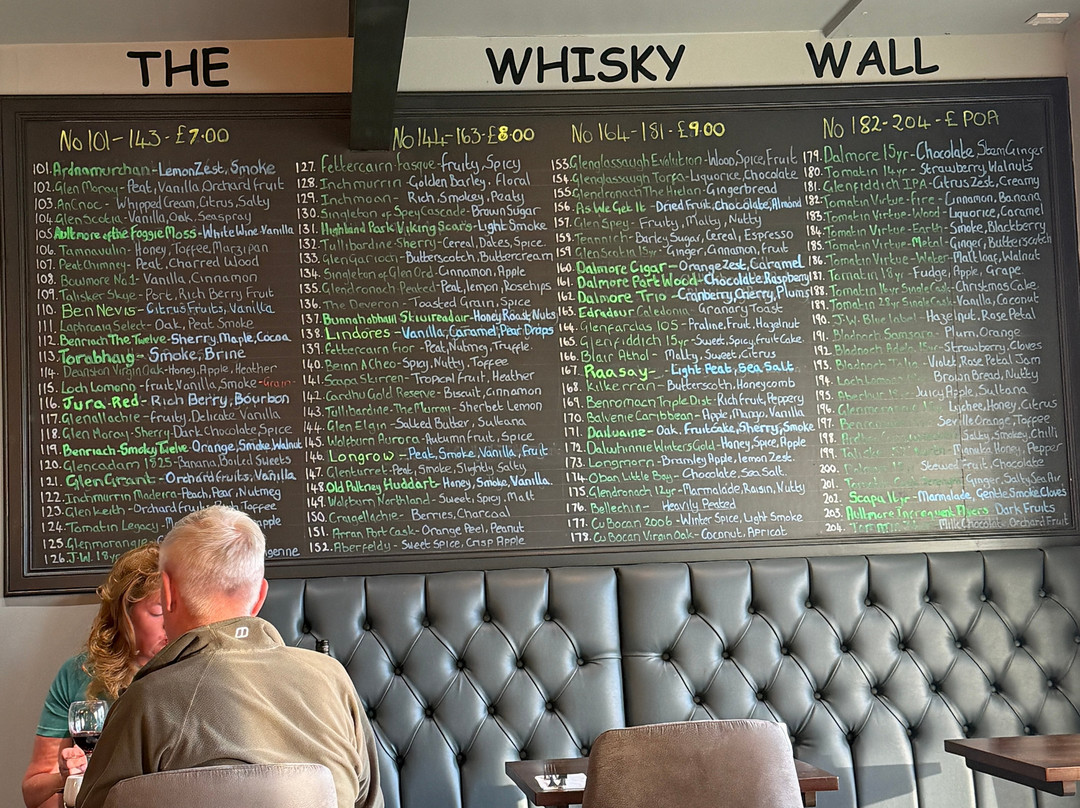 THE WHISKY WALL
No 101-143-£7.00
101. Ardnamurchan-Lemon Zest, Smoke
102. Glen Moray-Peat, Vanilla, Orchard fruit
103. AnCnoc- Whipped Cream, Citrus, Salty
104. Glen Scotia-Vanilla, Oak, Seaspray
105. Aultmore of the Foggie Moss-White Wine, Vanilla
106. Tamnavulin- Honey, Toffee, Marzipan
107. Peat Chimney- Peat, Charred Wood
108. Bowmore No.1- Vanilla, Cinnamon
109. Talisker Skye- Port, Rich Berry Fruit
110. Ben Nevis- Citrus Fruits, Vanilla
111. Laphroaig Select- Oak, Peat Smoke
112. Benriach The Twelve-Sherry, Maple, Cocoa
113. Torabhaig- Smoke, Brine
114. Deanston Virgin Oak-Honey, Apple, Heather
115. Loch Lomond-fruit, Vanilla, Smoke-Grain-
116. Jura Red- Rich Berry, Bourbon
117. Glenallachie- fruity, Delicate Vanilla
118. Glen Moray-Sherry-Dark Chocolate, Spice
119. Benriach-Smoky Twelve-Orange, Smoke, Walnut
120. Glencadam 1825-Banana, Boiled Sweets
121. Glen Grant- Orchard fruits, Vanilla
122. Inchmurrin Madeira-Peach, Pear, Nutmeg
123. Glen Keith-Orchard fruit
124. Tomatin Legacy- Apple
125. Glenmorangie
126. J.W. 18yr
No 144-163-£8.00
127. Fettercairn Fasque-fruity, Spicy
128. Inchmurrin-Golden Barley, Floral
129. Inchmoan- Rich, Smokey, Peaty
130. Singleton of Spey Cascade-Brown Sugar
131. Highland Park Viking Scars-Light Smoke
132. Tullibardine-Sherry-Cereal, Dates, Spice
133. Glen Garioch-Butterscotch, Buttercream
134. Singleton of Glen Ord-Cinnamon, Apple
135. Glendronach Peated-Peat, lemon, Rosehips
136. The Deveron- Toasted Grain, Spice
137. Bunnahabhain Stiuireadair-Honey Roast, Nuts
138. Lindores -Vanilla, Caramel, Pear Drops
139. Fettercairn Fior-Peat, Nutmeg, Truffle
140. Beinn A'Cheo-Spicy, Nutty, Toffee
141. Scapa Skirren-Tropical fruit, Heather
142. Cardhu Gold Reserve-Biscuit, Cinnamon
143. Tullibardine-The Murray-Sherbet Lemon
144. Glen Elgin-Salted Butter, Sultana
145. Wolfburn Aurora-Autumn fruit, Spice
146. Longrow -Peat, Smoke, Vanilla, Fruit
147. Glenturret-Peat, Smoke, Slightly Salty
148. Old Pulteney Huddart-Honey, Smoke, Vanilla
149. Wolfburn Northland-Sweet, Spicy, Malt
150. Craigellachie- Berries, Charcoal
151. Arran Port Cask-Orange Peel, Peanut
152. Aberfeldy- Sweet Spice, Crisp Apple
No 164-181-£9.00
153. Glenglassaugh Evolution-Wood, Spice, Fruit
154. Glenglassaugh Torfa-Liquorice, Chocolate
155. Glendronach The Hielan-Gingerbread
156. As We Get It-Dried Fruit, Chocolate, Almond
157. Glen Spey-Fruity, Malty, Nutty
158. Teaninich-Barley Sugar, Cereal, Espresso
159. Glen Scotia 15yr-Ginger, Cinnamon, fruit
160. Dalmore Cigar-Orange Zest, Caramel
161. Dalmore Port Wood-Chocolate, Raspberry
162. Dalmore Trio-Cranberry, Cherry, Plums
163. Edradour Caledonia-Granary Toast
164. Glenfarclas 105-Praline, Fruit, Hazelnut
165. Glenfiddich 15yr-Sweet, Spicy, fruit Cake
166. Blair Athol- Malty, Sweet, Citrus
167. Raasay- Light Peat, Sea Salt
168. Kilkerran-Butterscotch, Honeycomb
169. Benromach Triple Dist-Rich fruit, Peppery
170. Balvenie Caribbean-Apple, Mango, Vanilla
171. Dailuaine- Oak, fruitcake, Sherry, Smoke
172. Dalwhinnie Winters Gold-Honey, Spice, Apple
173. Longmorn-Bramley Apple, lemon Zest
174. Oban Little Bay-Chocolate, Sea Salt
175. Glendronach 12yr-Marmalade, Raisin, Nutty
176. Bellechin- Heavily Peated
177. Cu Bocan 2006-Winter Spice, Light Smoke
178. Cu Bocan Virgin Oak-Coconut, Apricot
No 182-204-£ POA
179. Dalmore 15yr-Chocolate, Stem Ginger
180. Tomatin 14yr- Strawberry, Walnuts
181. Glenfiddich IPA-Citrus Zest, Creamy
182. Tomatin Virtue-Fire-Cinnamon, Banana
183. Tomatin Virtue-Wood-Liquorice, Caramel
184. Tomatin Virtue-Earth-Smoke, Blackberry
185. Tomatin Virtue-Metal-Ginger, Butterscotch
186. Tomatin Virtue-Water-Malt loaf, Walnut
187. Tomatin 18yr-Fudge, Apple, Grape
188. Tomatin Single Cask-Christmas Cake
189. Tomatin 28yr Single Cask-Vanilla, Coconut
190. J.W. Blue label-Hazelnut, Rose Petal
191. Bladnoch Samsara-Plum, Orange
192. Bladnoch Adela 15yr-Strawberry, Cloves
193. Bladnoch Violet, Rose Petal Jam
194. Loch Lomond Brown Bread, Nutty
195. Aberlour Juicy Apple, Sultana
196. Glenmorangie Lychee, Honey, Citrus
197. Seville Orange, Toffee
198. Salty, Smoky, Chilli
199. Manuka Honey, Pepper
200. Stewed Fruit, Chocolate
201. Ginger, Salty Sea Air
202. Scapa 16yr-Marmalade, Gentle Smoke, Cloves
203. Aultmore Dark Fruits
204. Milk Chocolate, Orchard Fruit